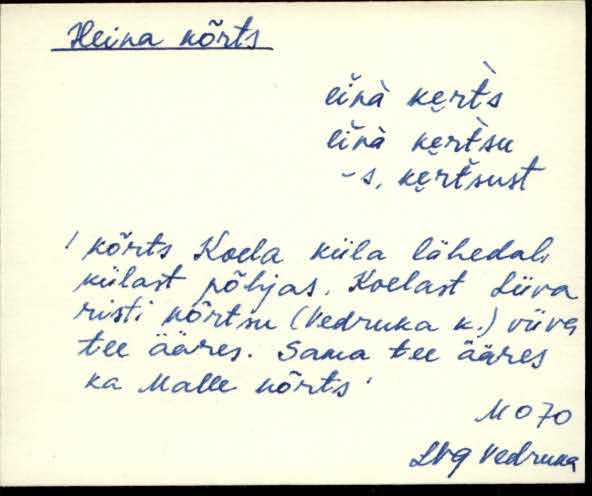 Heina kõrts
eĭnà kèrt̀s
eĭnà kèrt̀su
-s, kèrt̀sust
' kõrts Koela küla lähedal,
külast põhjas. Koelast Liiva
risti kõrtsu (Vedruka k.) viiva
tee ääres. Sama tee ääres
ka Malle kõrts'
MO70
LNg Vedruka